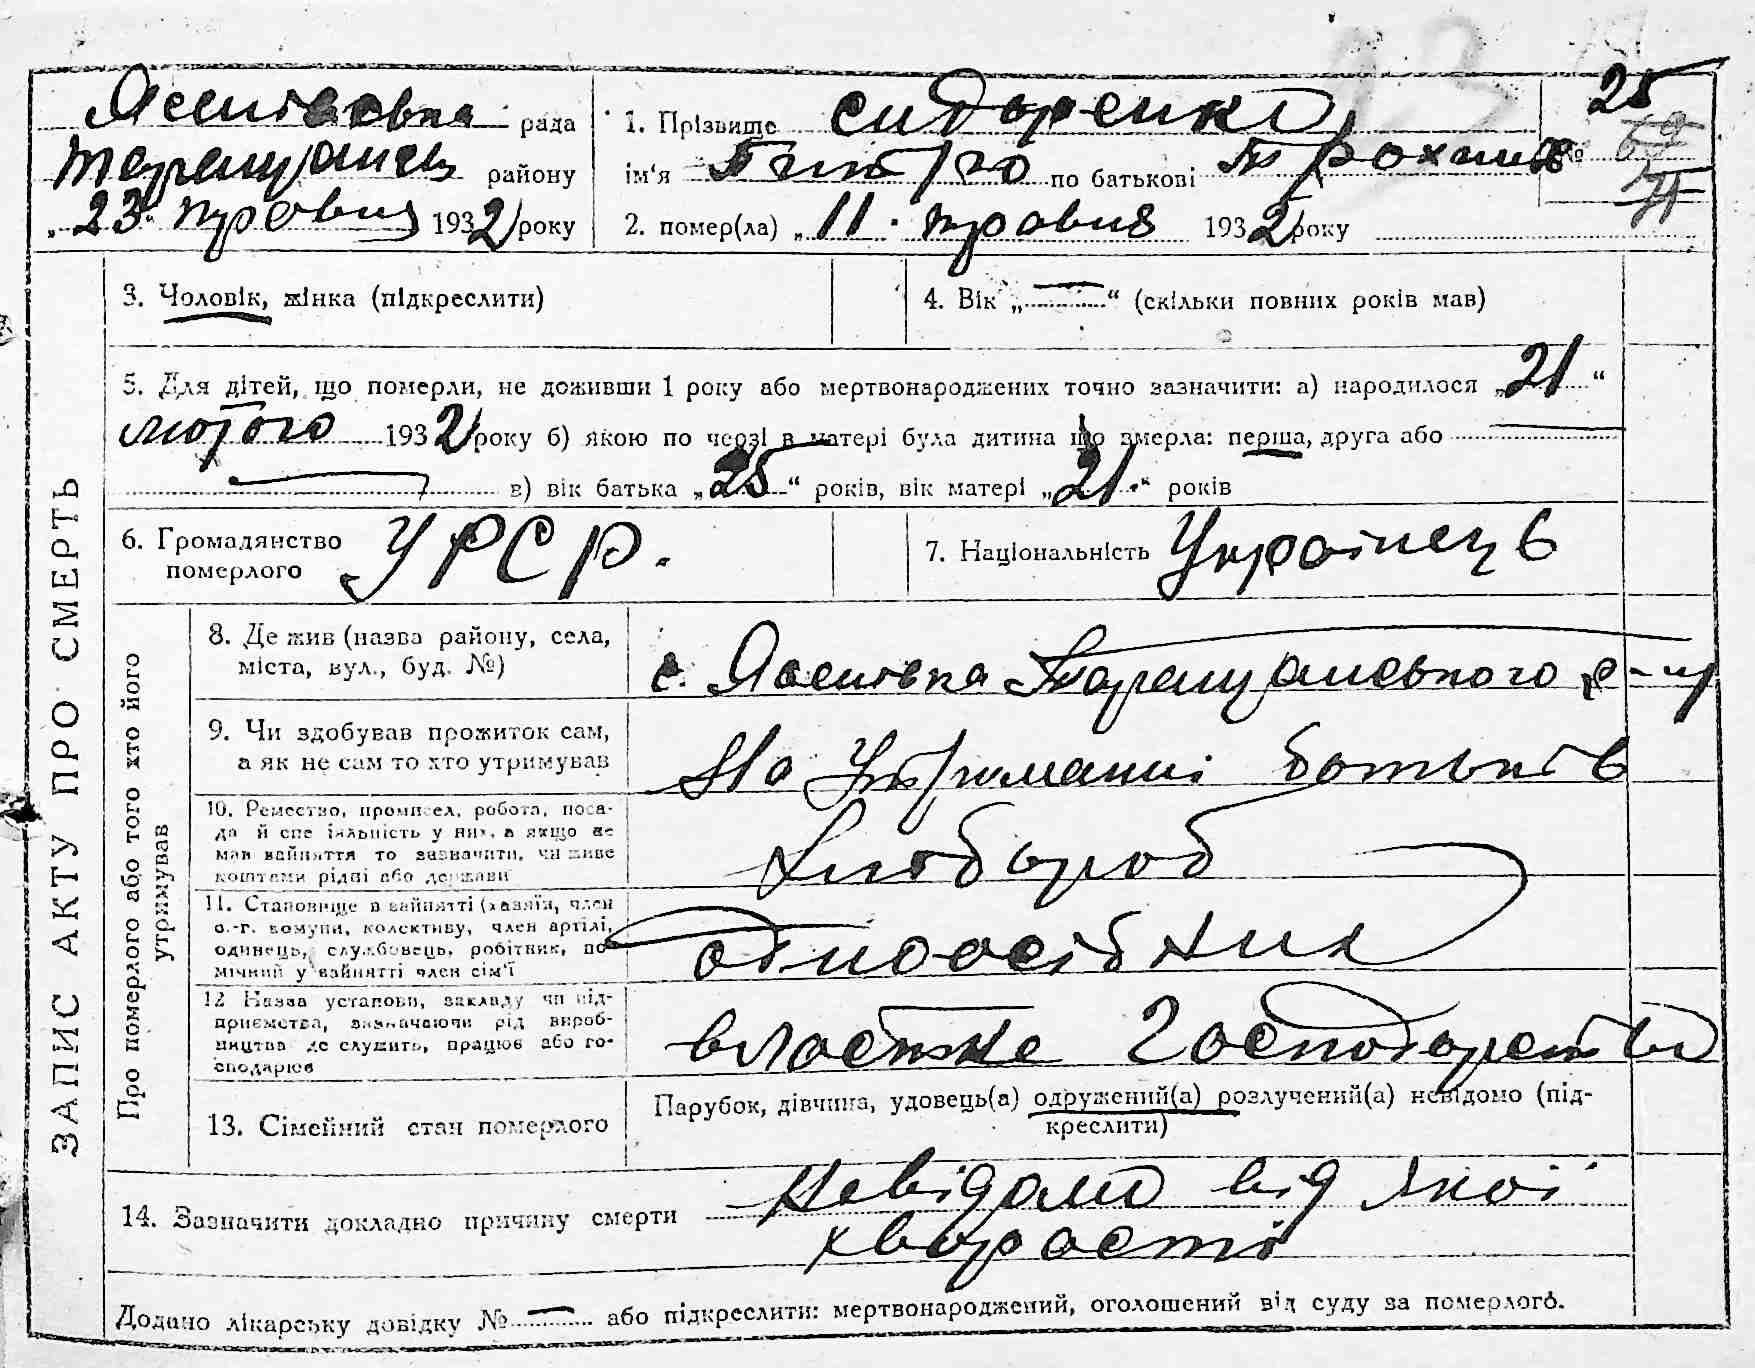 ЗАПИС АКТУ ПРО СМЕРТЬ
Ясенівська рада
району
„23. травня 1932 року
1. Прізвище Сидоренко
ім'я Петро по батькові Трохим №
25
2. помер(ла) „11. травня 1932 року
3. Чоловік, жінка (підкреслити)
4. Вік „—“ (скільки повних років мав)
5. Для дітей, що померли, не доживши 1 року або мертвонароджених точно зазначити: а) народилося „21“
лютого 1932 року б) якою по черзі в матері була дитина що вмерла: перша, друга або —
— в) вік батька „25“ років, вік матері „21.“ років
6. Громадянство
померлого
УРСР.
7. Національність Українець
Про померлого або того хто його
утримував
8. Де жив (назва району, села,
міста, вул., буд. №)
с. Ясенівка
9. Чи здобував прожиток сам,
а як не сам то хто утримував
На утриманні батьків
10. Ремество, промисел, робота, поса-
да й спеціяльність у них, а якщо не
мав зайняття то зазначити, чи живе
коштами рідні або держави
Хлібороб
11. Становище в зайнятті (хазяїн, член
с.-г. комуни, колективу, член артілі,
одинець, службовець, робітник, по-
мічний у зайнятті член сім'ї
одноосібник
12 Назва установи, закладу чи під-
приємства, зазначаючи рід вироб-
ництва де служить, працює або го-
сподарює
власне господарство
13. Сімейний стан померлого
Парубок, дівчина, удовець(а) одружений(а) розлучений(а) невідомо (під-
креслити)
14. Зазначити докладно причину смерти
Невідомо від якої
хворости
Додано лікарську довідку №— або підкреслити: мертвонароджений, оголошений від суду за померлого.